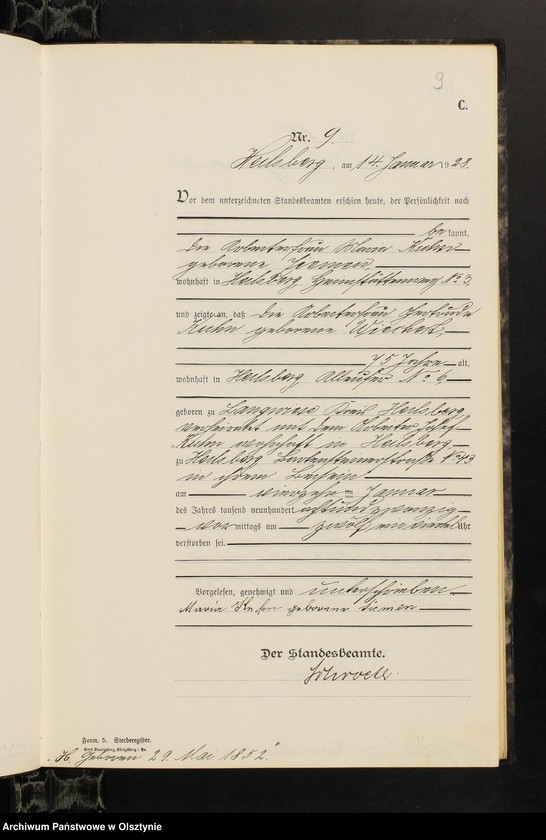 9
C.
Nr. 9.
Heilsberg, am 14. Januar 1928.
Vor dem unterzeichneten Standesbeamten erschien heute, der Persönlichkeit nach
bekannt,
die Arbeiterfrau Maria Kuhn
geborene
wohnhaft in Heilsberg No 3,
und zeigte an, daß die Arbeiterfrau Gertrude
Kuhn geborene
75 Jahre alt,
wohnhaft in Heilsberg No 6
geboren zu Kreis Heilsberg
verheiratet mit dem Arbeiter Josef
Kuhn wohnhaft in Heilsberg
zu Heilsberg No 43
in ihrem Beisein
am vierzehnten Januar
des Jahres tausend neunhundert achtundzwanzig
vormittags um zwölf ein viertel Uhr
verstorben sei.
Vorgelesen, genehmigt und unterschrieben
Maria Kuhn geborene
Der Standesbeamte.
Form. 5. Sterberegister.
H. Geboren 29. Mai 1852."
Archiwum Państwowe w Olsztynie